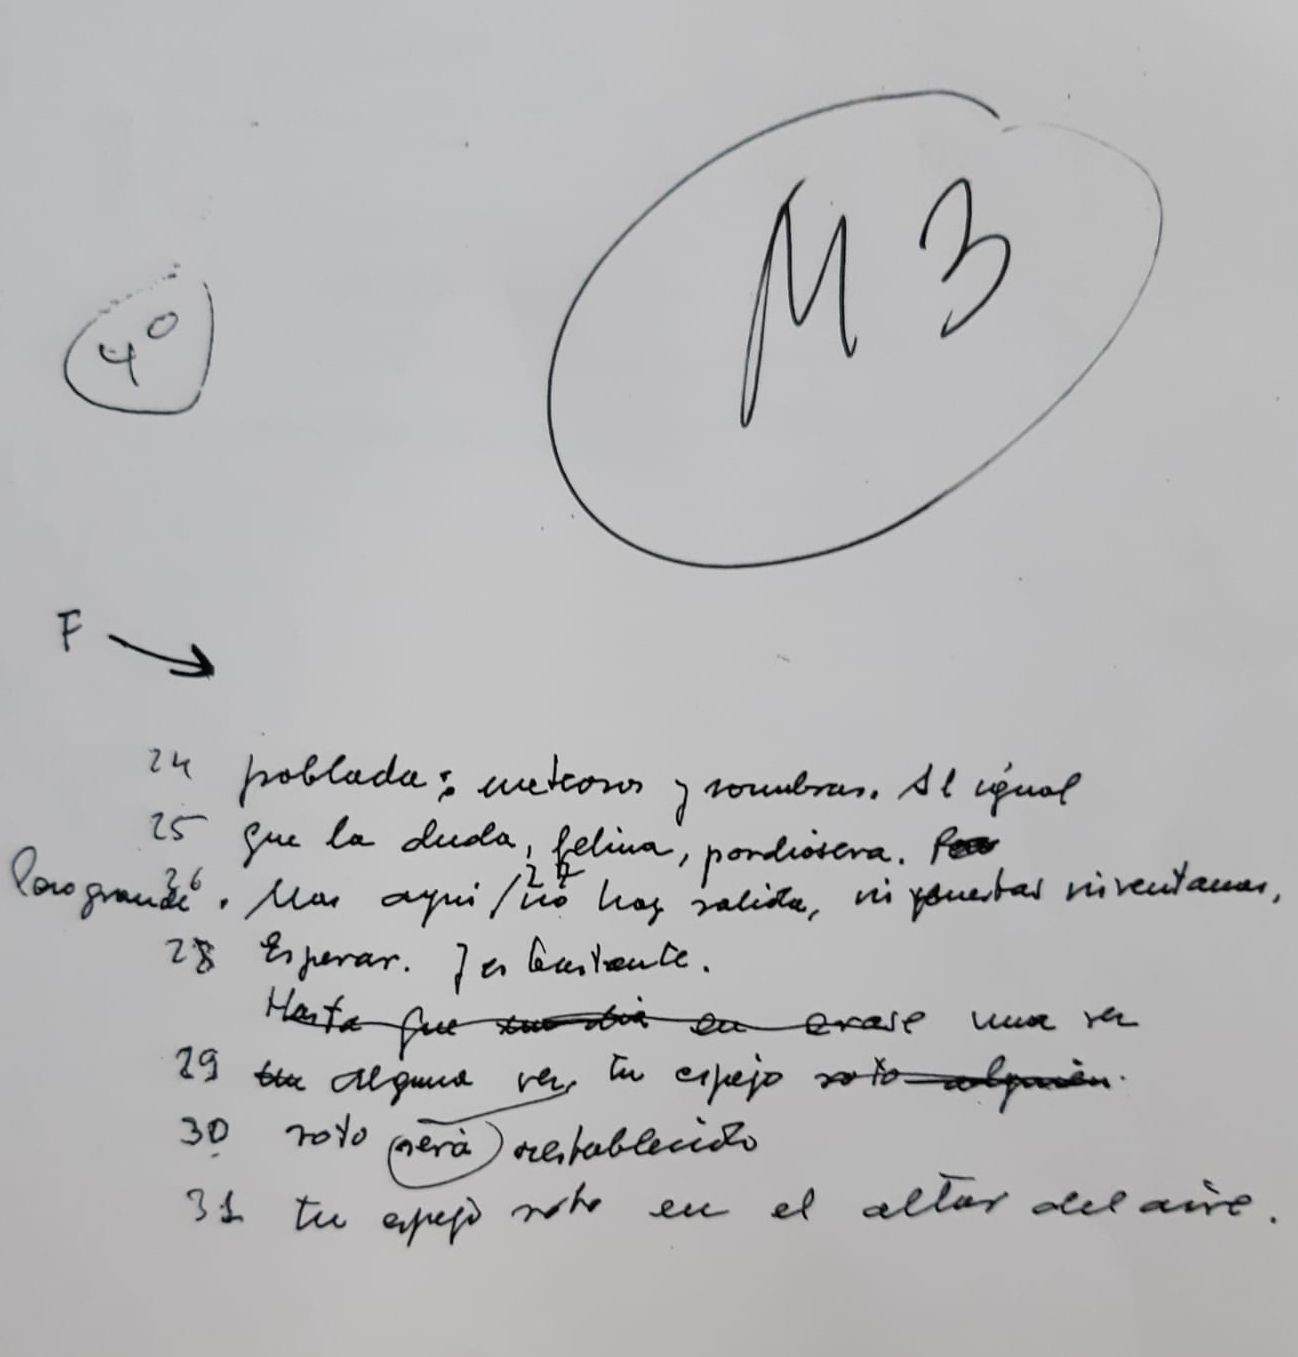 M 3
4º
F
24 poblada: meteoros y sombras. Al igual
25 que la duda, felina, pordiosera.
Pero grande. 26 Mas aquí / 27 no hay salida, ni puertas ni ventanas,
28 Esperar. Y es bastante.
Hasta que en erase una vez
29 alguna vez, tu espejo roto alguien.
30 roto será restablecido
31 tu espejo roto en el altar del aire.